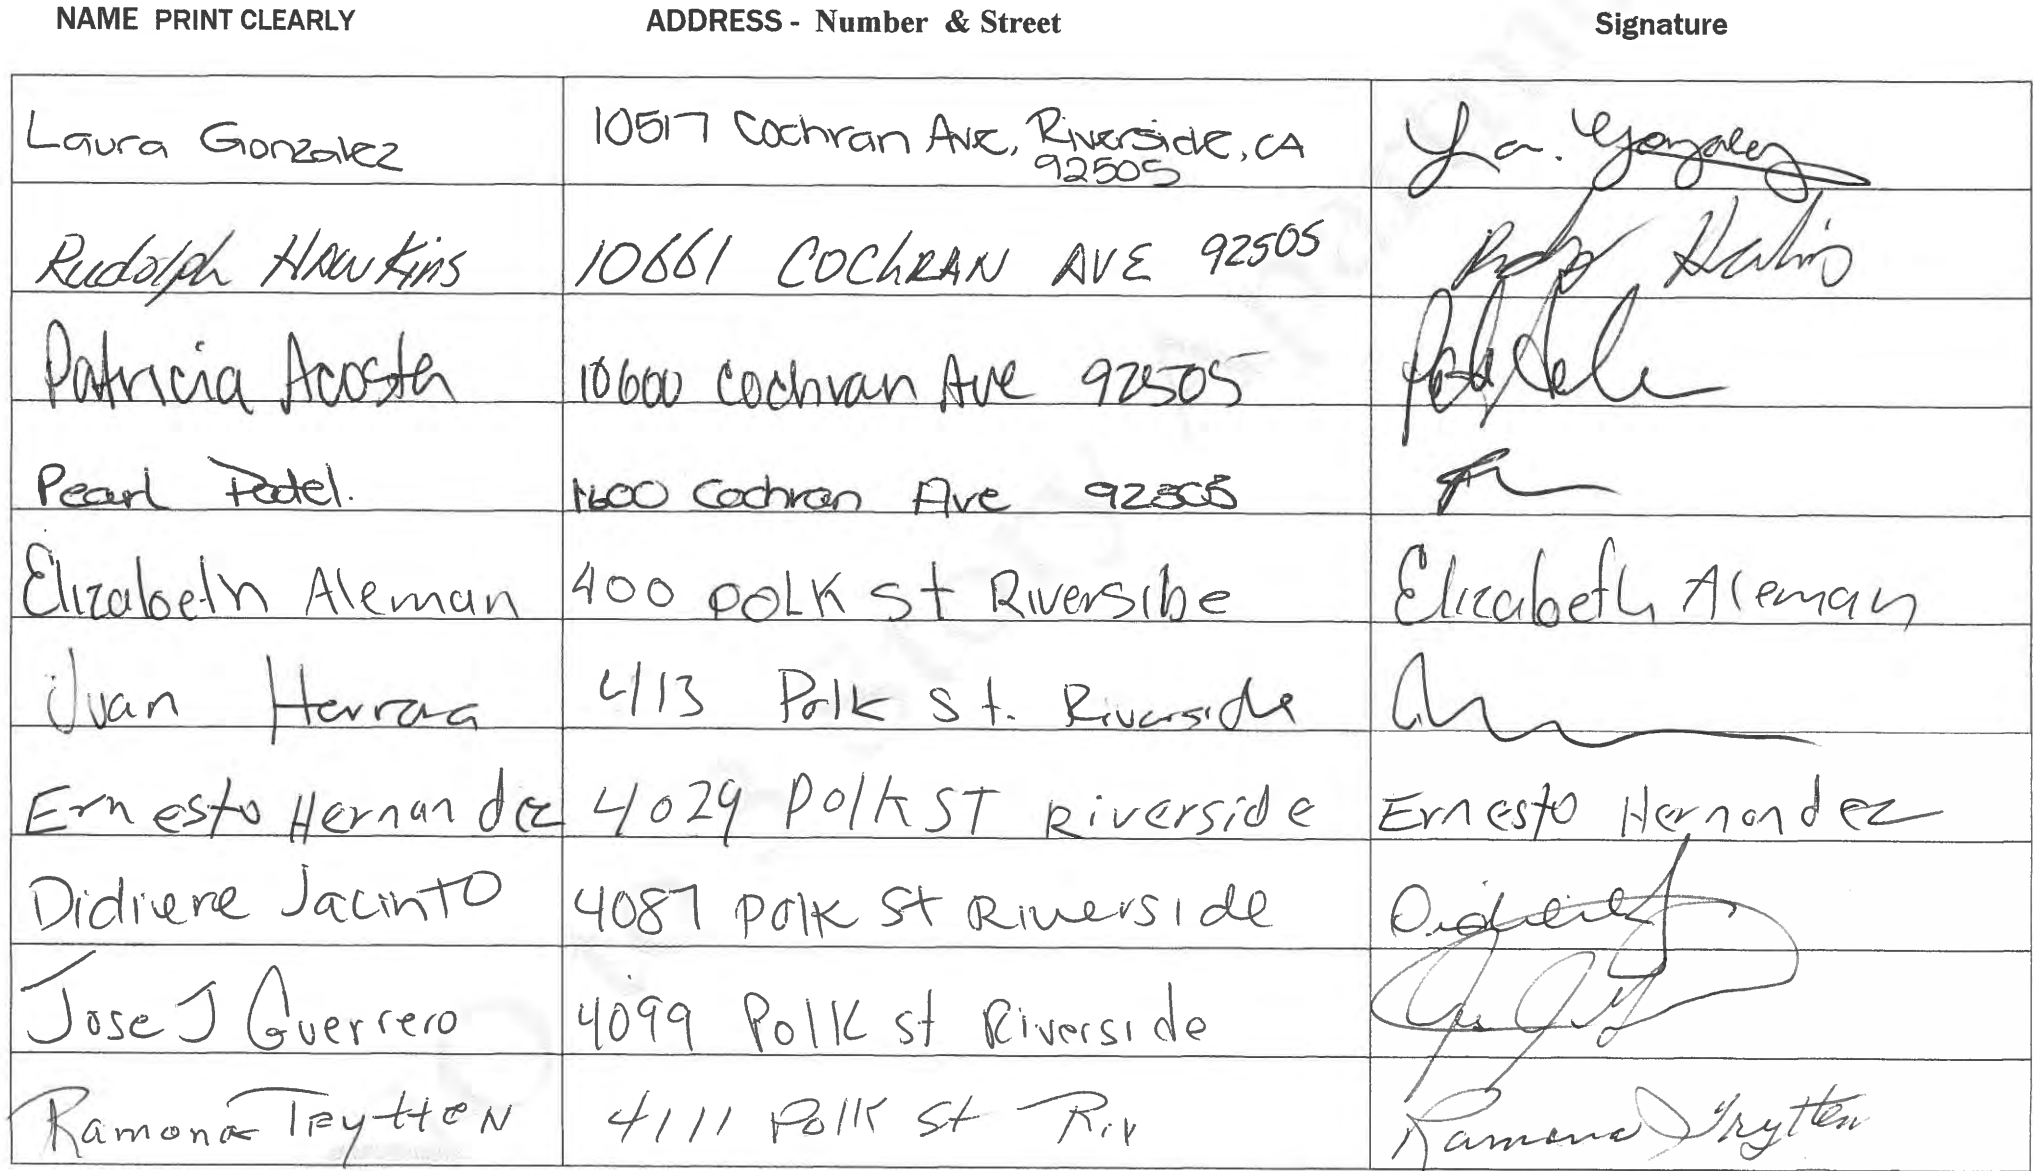 NAME PRINT CLEARLY ADDRESS - Number & Street Signature
Laura Gonzalez 10517 Cochran Ave, Riverside, CA La. Gonzalez
92505
Rudolph HAWKins 10661 COCHRAN AVE 92505
Patricia Acosta 10600 Cochran Ave 92505
Pearl Patel. 1600 Cochran Ave 92505
Elizabeth Aleman 400 POLK St Riversibe Elizabeth Aleman
Juan Herrara 413 Polk St. Riverside
Ernesto Hernandez 4029 Polk ST Riverside Ernesto Hernandez
Didiere Jacinto 4087 Polk St Riverside
Jose J Guerrero 4099 Polk st Riverside
Ramona TRytteN 4111 Polk St Riv Ramona Trytten